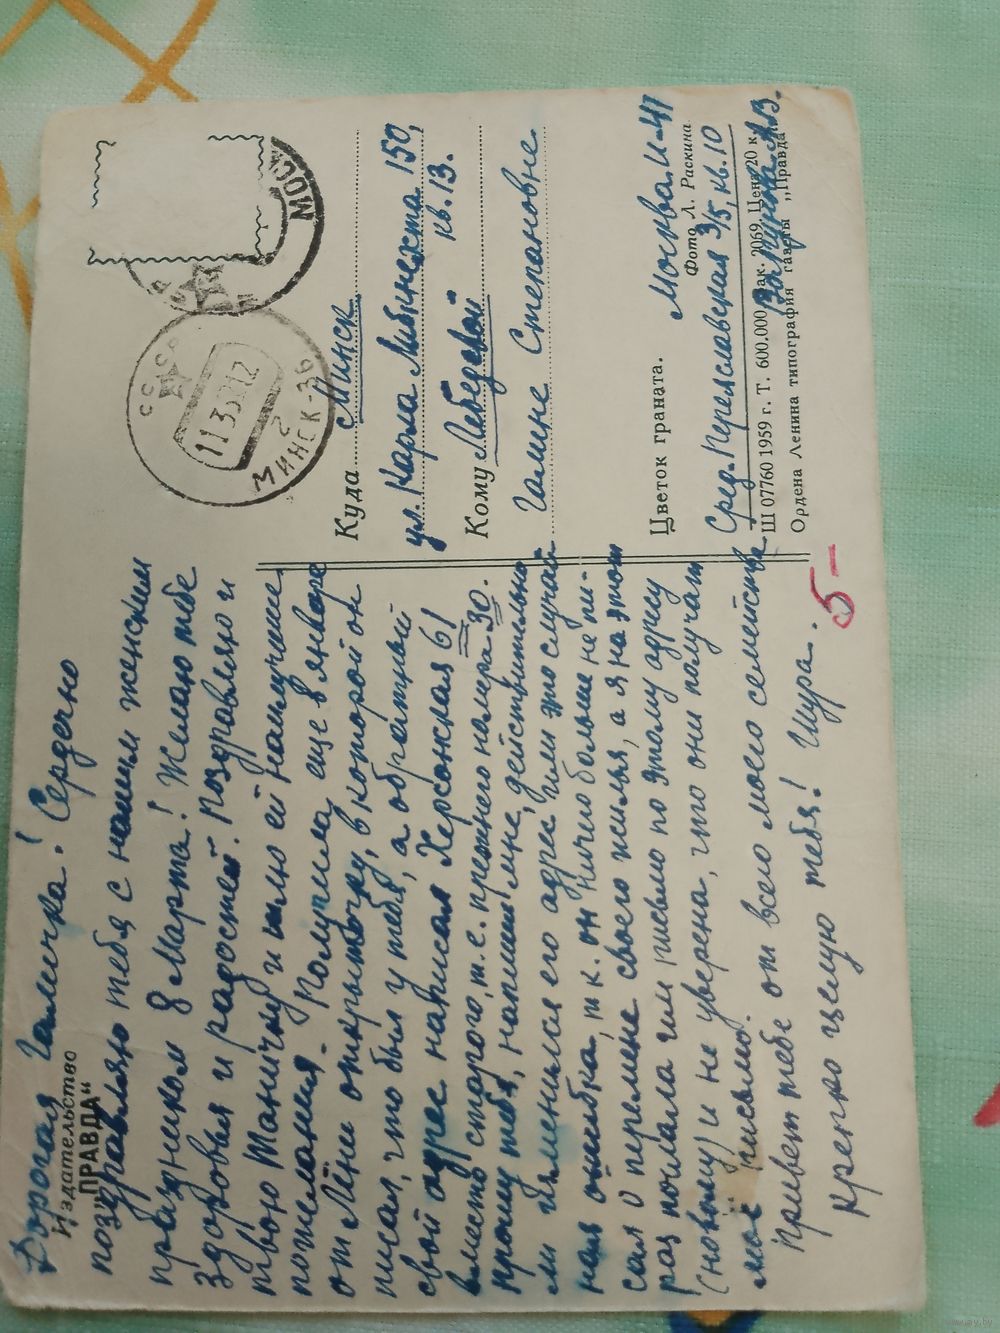 Дорогая Галичка! Сердечно
поздравляю тебя с нашим женским
праздником 8 Марта! Желаю тебе
здоровья и радостей. Поздравляю и
твою Танечку и шлю ей наилучшие
пожелания. Получила еще в январе
от Лёни открыточку, в которой он
писал, что был у тебя, а обратный
свой адрес написал Херсонская 61
вместо старого, т.е. прежнего номера 30.
Прошу тебя, напиши мне, действительно
ли изменился его адрес или это случай
ная ошибка, т.к. он ничего больше не пи-
сал о перемене своего жилья, а я на этот
раз послала им письмо по этому адресу
(новому) и не уверена, что они получат
мое письмо.
Привет тебе от всего моего семейства
Крепко целую тебя! Шура.
Издательство
„ПРАВДА“
МОСК
СССР
11 3 12
2
МИНСК-36
Куда Минск
ул. Карла Либкнехта 150,
кв. 13.
Кому Лебедевой
Галине Степановне
Цветок граната.
Фото Л. Раскина
Москва И-41
Сред. Переславская 3/5, кв. 10
Ш 07760 1959 г. Т. 600.000 Зак. 2069. Цена 20 к
Ордена Ленина типография газеты „Правда“
5-